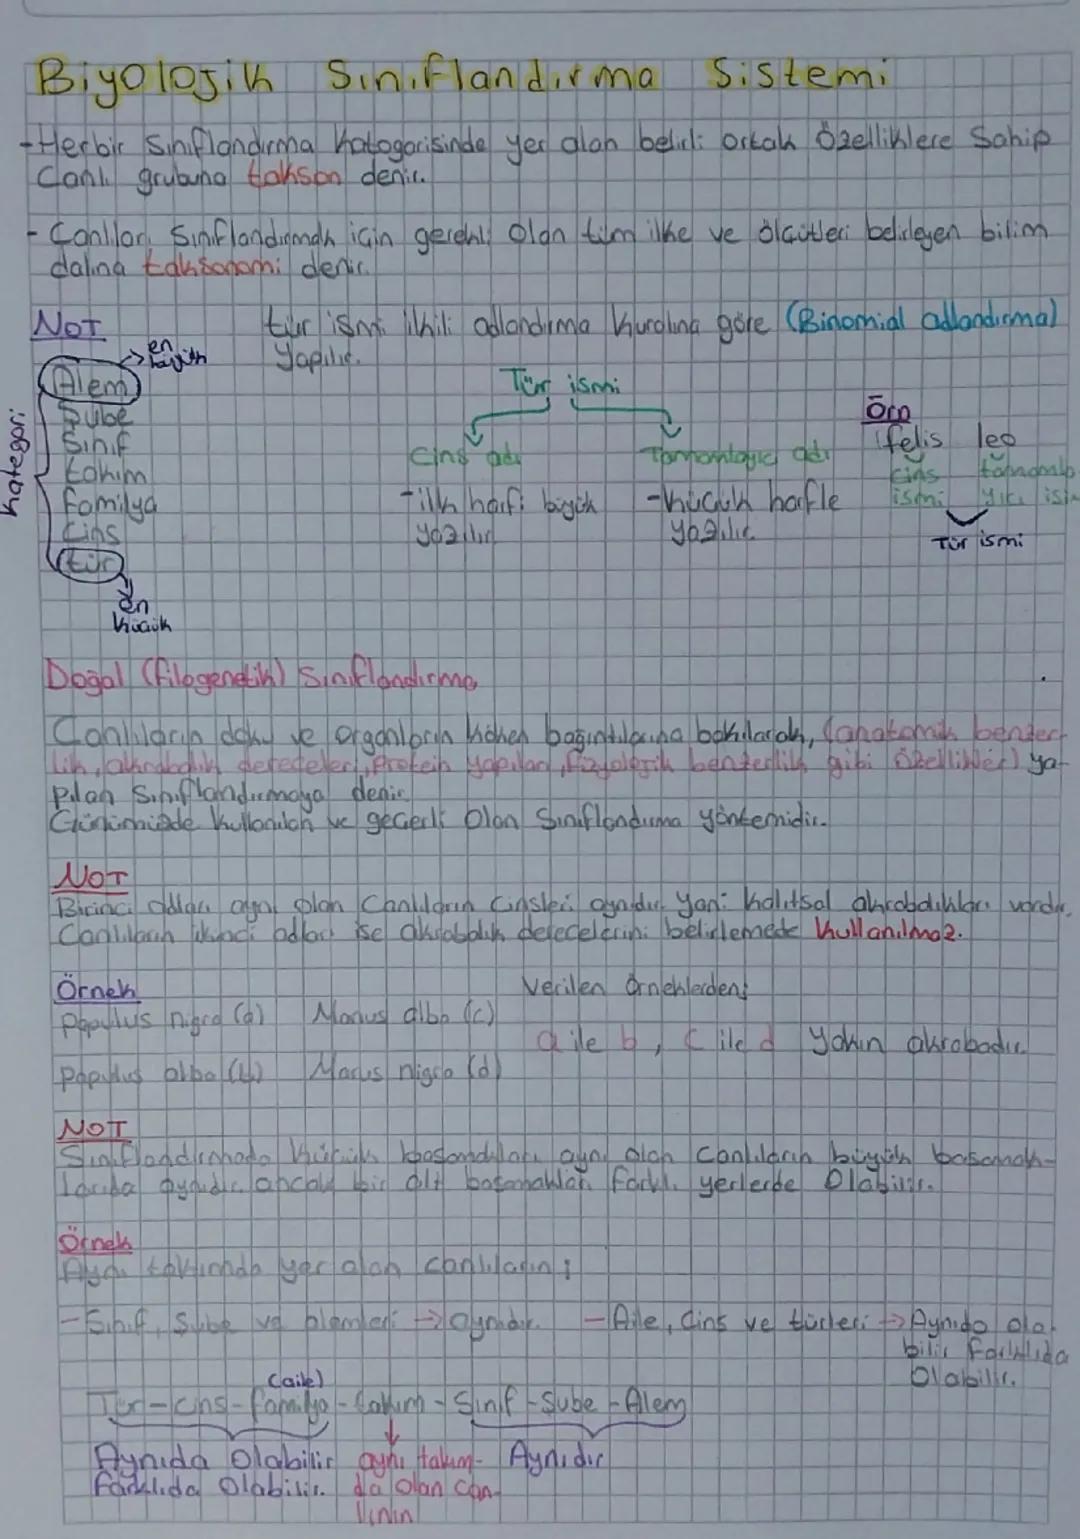 Biyolojik Sınıflandırma Sistemi
-Herbir Sınıflandırma Katogorisinde yer alan belirli ortak Özelliklere Sahip
Canlı grubuna takson denir.
- Canlıları Sınıflandırmak için gerekli Olan tüm ilke ve ölçütleri belirleyen bilim
dalına taksonomi denir.
NOT
tür ismi ikili adlandırma kuralına göre (Binomial adlandırma)
Yapılır.
Kategori
Alem
en büyük
Şube
Sınıf
takım
familya
Cins
tür
en
küçük
Tür ismi
Cins adı
-ilk harfi büyük
yazılır
Tanımlayıcı adı
-küçük harfle
yazılır.
Örn
felis leo
cins
ismi
Tür ismi
Doğal (filogenetik) Sınıflandırma
Canlıların doku ve organların köken bağıntılarına bakılarak, (anatomik benzer-
lik, akrabalık dereceleri, Protein yapıları, fizyolojik benzerlik gibi özellikler) ya-
pılan Sınıflandırmaya denir
Günümüzde kullanılan ve geçerli Olan Sınıflandırma yöntemidir.
NOT
Birinci adları aynı olan Canlıların Cinsleri aynıdır yani kalıtsal akrabalıkları vardır.
Canlıların ikinci adları ise akrabalık derecelerini belirlemede kullanılmaz.
Örnek
Populus nigra (a) Morus alba (c)
Populus alba (b) Morus nigra (d)
Verilen Örneklerden;
a ile b, C ile d yakın akrabadır.
NOT
Sınıflandırmada küçük basamakları aynı olan canlıların büyük basamak-
larıda aynıdır. ancak bir alt basamakları farklı yerlerde Olabilir.
Örnek
Aynı takımda yer alan canlıların;
-Sınıf, Şube ve alemleri → aynıdır. -Aile, Cins ve türleri → Aynıda ola-
bilir farklıda
Olabilir.
(aile)
Tür-cins-familya-takım-Sınıf-Şube-Alem
Aynıda Olabilir
farklıda Olabilir.
aynı takım-
da olan can-
lının
Aynıdır